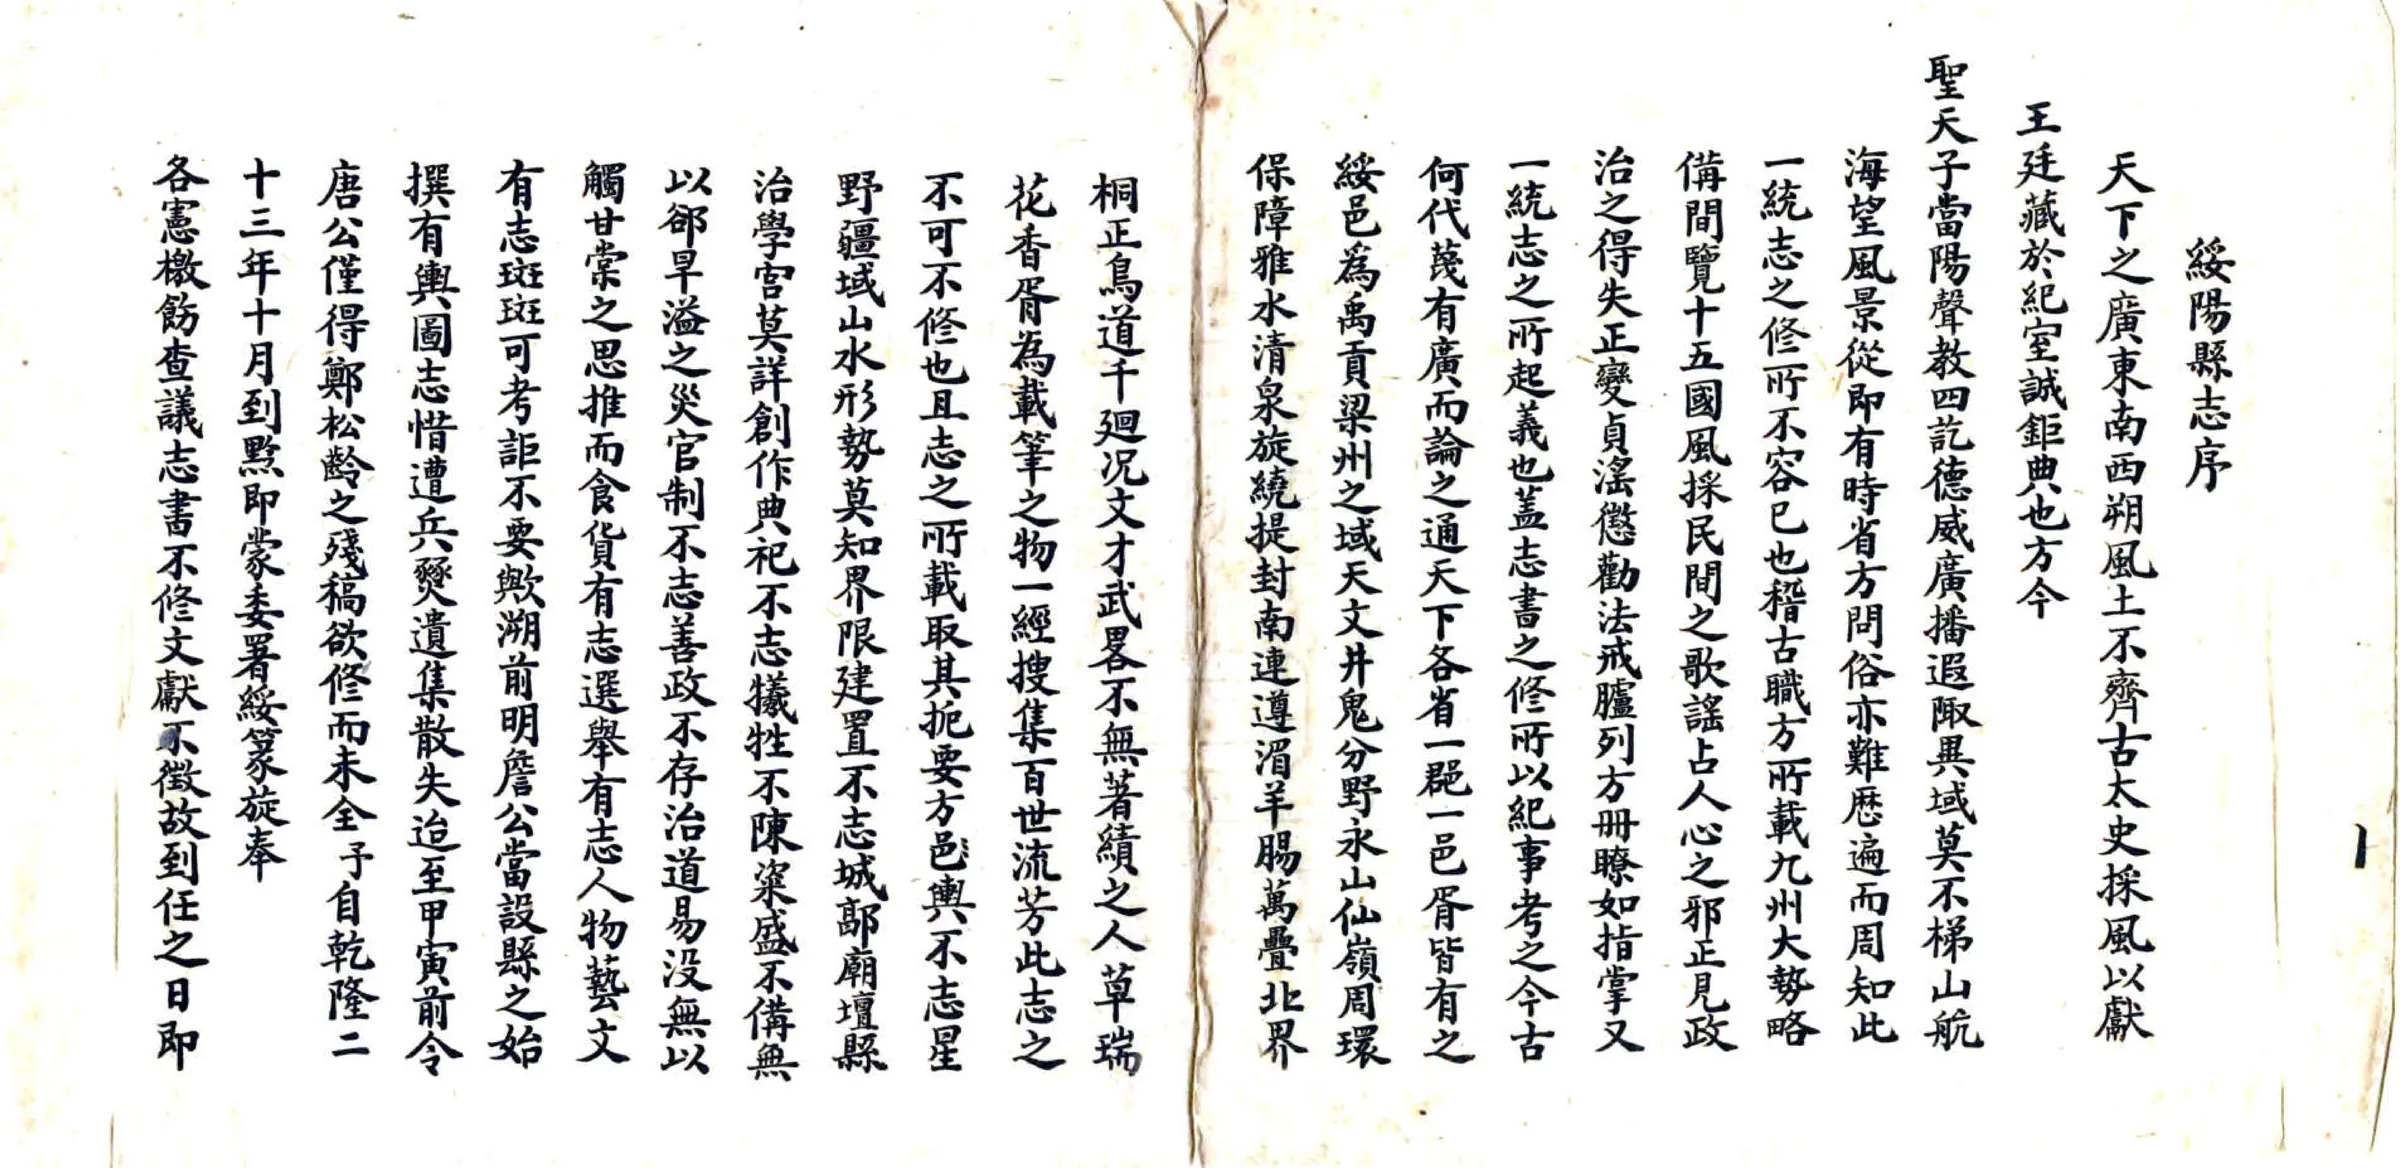 綏陽縣志序
天下之廣東南西朔風土不齊古太史採風以獻
王廷藏於紀室誠鉅典也方今
聖天子當陽聲教四訖德威廣播遐陬異域莫不梯山航
海望風景從即有時省方問俗亦難歷遍而周知此
一統志之修所不容已也稽古職方所載九州大勢略
備間覽十五國風採民間之歌謠占人心之邪正見政
治之得失正變貞滛懲勸法戒臚列方冊瞭如指掌又
一統志之所起義也蓋志書之修所以紀事考之今古
何代蔑有廣而論之通天下各省一郡一邑胥皆有之
綏邑為禹貢梁州之域天文井鬼分野永山仙嶺周環
保障雅水清泉旋繞提封南連遵湄羊腸萬疊北界
桐正鳥道千廻况文才武畧不無著績之人草瑞
花香胥為載筆之物一經搜集百世流芳此志之
不可不修也且志之所載取其扼要方邑輿不志星
野疆域山水形勢莫知界限建置不志城鄗廟壇縣
治學宮莫詳創作典祀不志犧牲不陳粢盛不備無
以郤旱溢之災官制不志善政不存治道易沒無以
觸甘棠之思推而食貨有志選舉有志人物藝文
有志斑斑可考詎不要歟溯前明詹公當設縣之始
撰有輿圖志惜遭兵燹遺集散失迨至甲寅前令
唐公僅得鄭松齡之殘稿欲修而未全予自乾隆二
十三年十月到黔即蒙委署綏篆旋奉
各憲檄飭查議志書不修文獻不徵故到任之日即